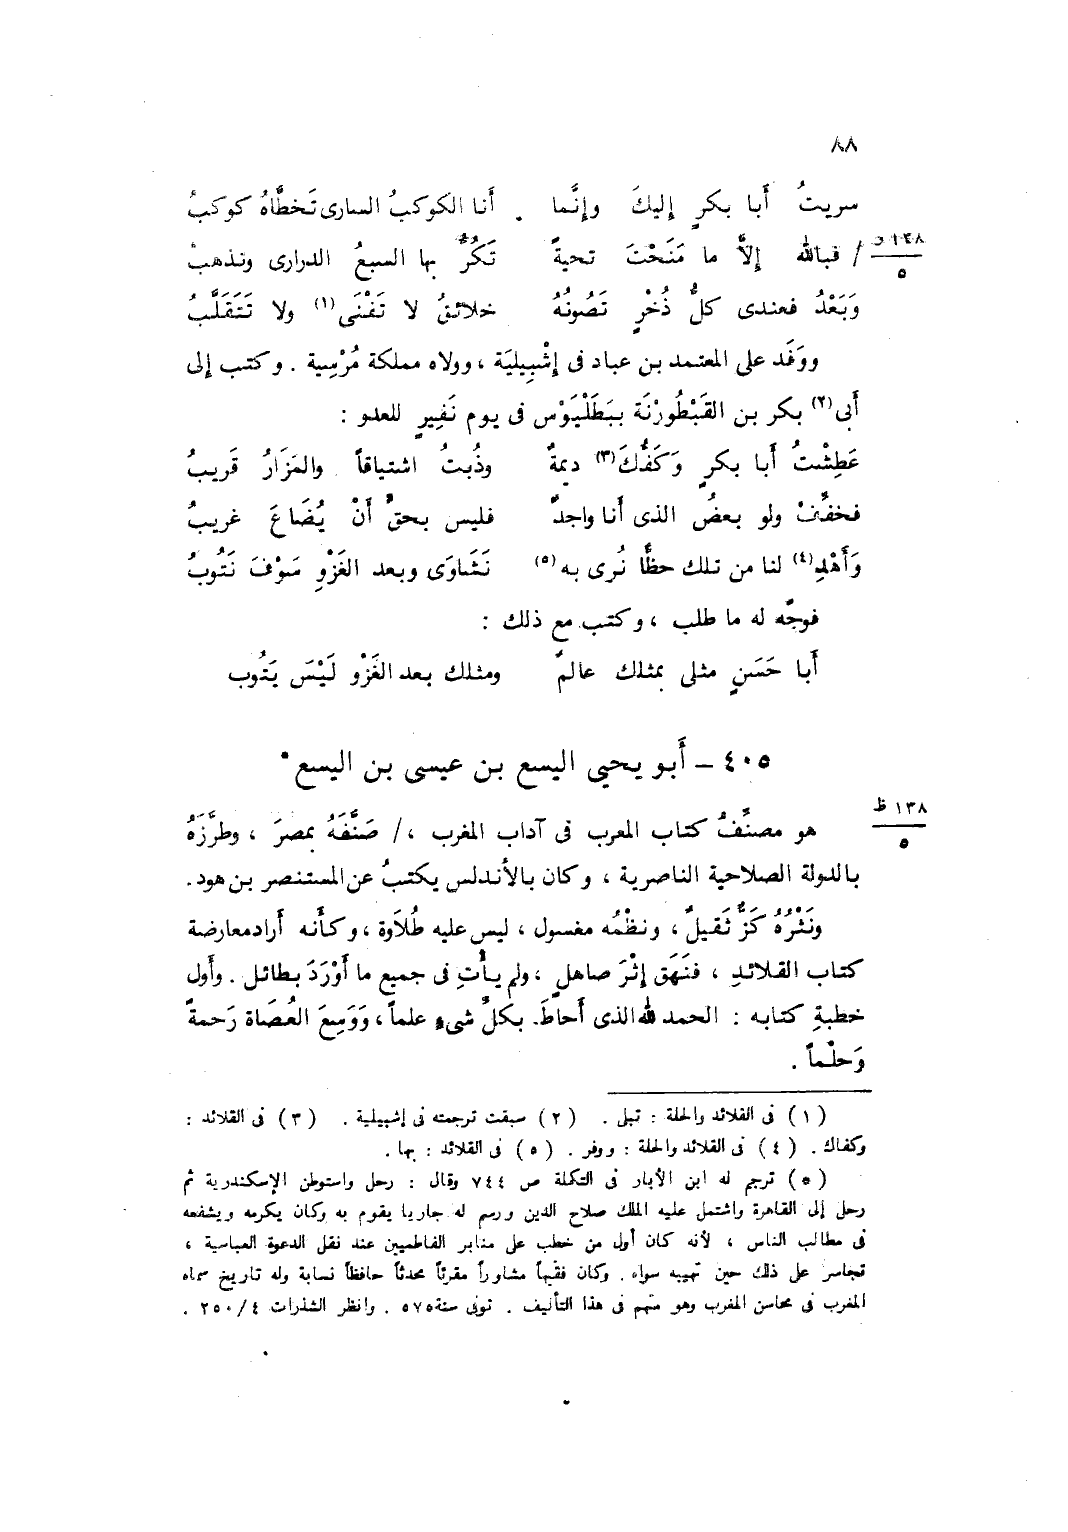 ٨٨
سريتُ أبا بكرٍ إليكَ وإنَّما أنا الكوكبُ السارى تَخطَّاهُ كوكبُ
١٣٨ و
٥
/ فبالله إلاَّ ما مَنَحْتَ تحيةً تَكُرُّ بها السبعُ الدرارى وتذهبُ
وَبَعْدُ فعندى كلُّ ذُخْرٍ تَصُونُهُ خلائقُ لا تَفْنَى (١) ولا تَتَقَلَّبُ
ووَفَد على المعتمد بن عباد فى إشْبِيليَة ، وولاه مملكة مُرْسِية . وكتب إلى
أبى (٢) بكر بن القَبْطُورْنَة ببَطَلْيَوْس فى يوم نَفِيرٍ للعدو :
عَطِشْتُ أبا بكرٍ وَكَفُّكَ (٣) ديمةٌ وذُبتُ اشتياقاً والمَزَارُ قَريبُ
فخفِّفْ ولو بعضُ الذى أنا واجدٌ فليس بحقٍّ أنْ يُضَاعَ غريبُ
وَأَهْدِ (٤) لنا من تلك حظًّا نُرى به (٥) نَشَاوَى وبعد الغَزْوِ سَوْفَ نَتُوبُ
فوجَّه له ما طلب ، وكتب مع ذلك :
أبا حَسَنٍ مثلى بمثلك عالمٌ ومثلك بعد الغَزْوِ لَيْسَ يَتُوب
٤٠٥ – أبو يحيى اليسع بن عيسى بن اليسع *
١٣٨ ظ
٥
هو مصنِّفُ كتاب المعرب فى آداب المغرب ، / صَنَّفَهُ بمصرَ ، وطرَّزَهُ
بالدولة الصلاحية الناصرية ، وكان بالأندلس يكتبُ عن المستنصر بن هود .
ونَثْرُهُ كَزٌّ ثَقيلٌ ، ونظْمُه مغسول ، ليس عليه طُلاَوة ، وكأنه أراد معارضة
كتاب القلائدِ ، فنَهَق إثْرَ صاهلٍ ، ولم يأْتِ فى جميع ما أوْرَدَ بطائل . وأول
خطبةِ كتابه : الحمد لله الذى أحاطَ بكلِّ شىءٍ علماً ، وَوَسِعَ العُصَاة رَحمةً
وَحلْماً .
(١) فى القلائد والحلة : تبلى . (٢) سبقت ترجمته فى إشبيلية . (٣) فى القلائد :
وكفاك . (٤) فى القلائد والحلة : ووفر . (٥) فى القلائد : بها .
(*) ترجم له ابن الأبار فى التكملة ص ٧٤٤ وقال : رحل واستوطن الإسكندرية ثم
رحل إلى القاهرة واشتمل عليه الملك صلاح الدين ورسم له جاريا يقوم به وكان يكرمه ويشفعه
فى مطالب الناس ، لأنه كان أول من خطب على منابر الفاطميين عند نقل الدعوة العباسية ،
تجاسر على ذلك حين تهيبه سواه . وكان فقيهاً مشاوراً مقرئاً محدثاً حافظاً نسابة وله تاريخ سماه
المغرب فى محاسن المغرب وهو متهم فى هذا التأليف . توفى سنة ٥٧٥ . وانظر الشذرات ٤/ ٢٥٠ .